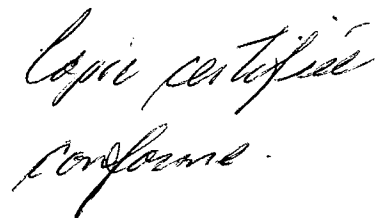 Copie certifiée
conforme.